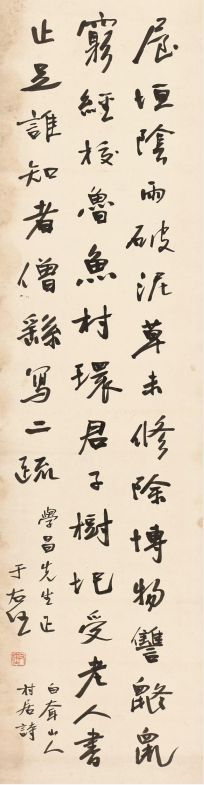 屋垣陰雨破泥草未修除博物讐鼠
窮經校魯魚村環君子樹圯受老人書
止足誰知者僧繇寫二疏
白耷山人
村居詩
學昌先生正
于右任